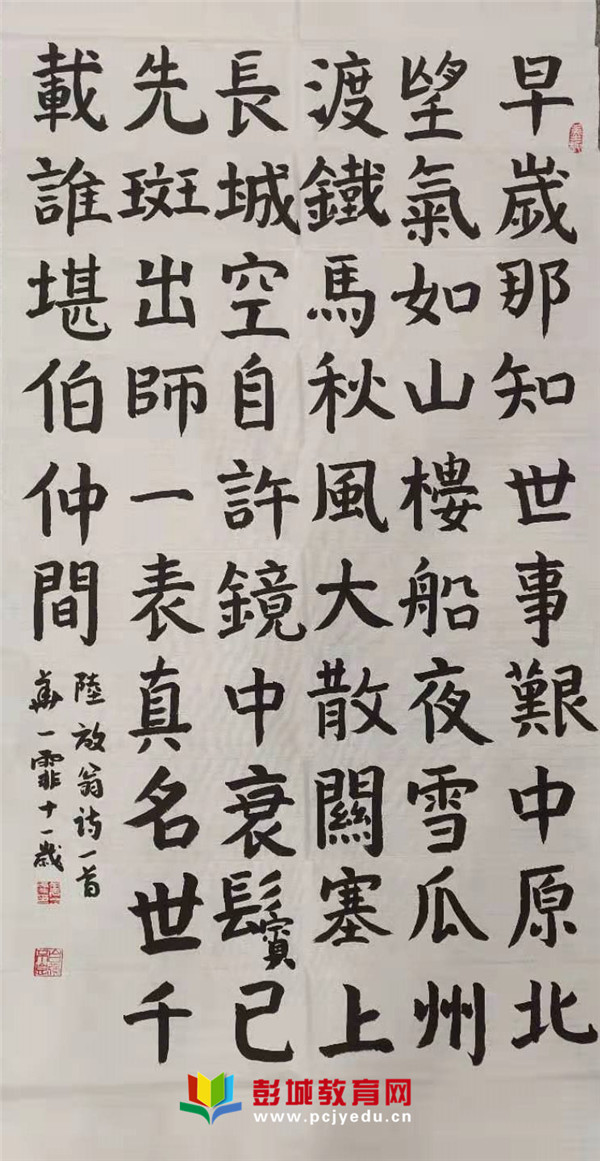 早歲那知世事艱中原北
望氣如山樓船夜雪瓜州
渡鐵馬秋風大散關塞上
長城空自許鏡中衰鬢已
先斑出師一表真名世千
載誰堪伯仲間
陸放翁詩一首
一霏十一歲
彭城教育网
www.pcjyedu.cn